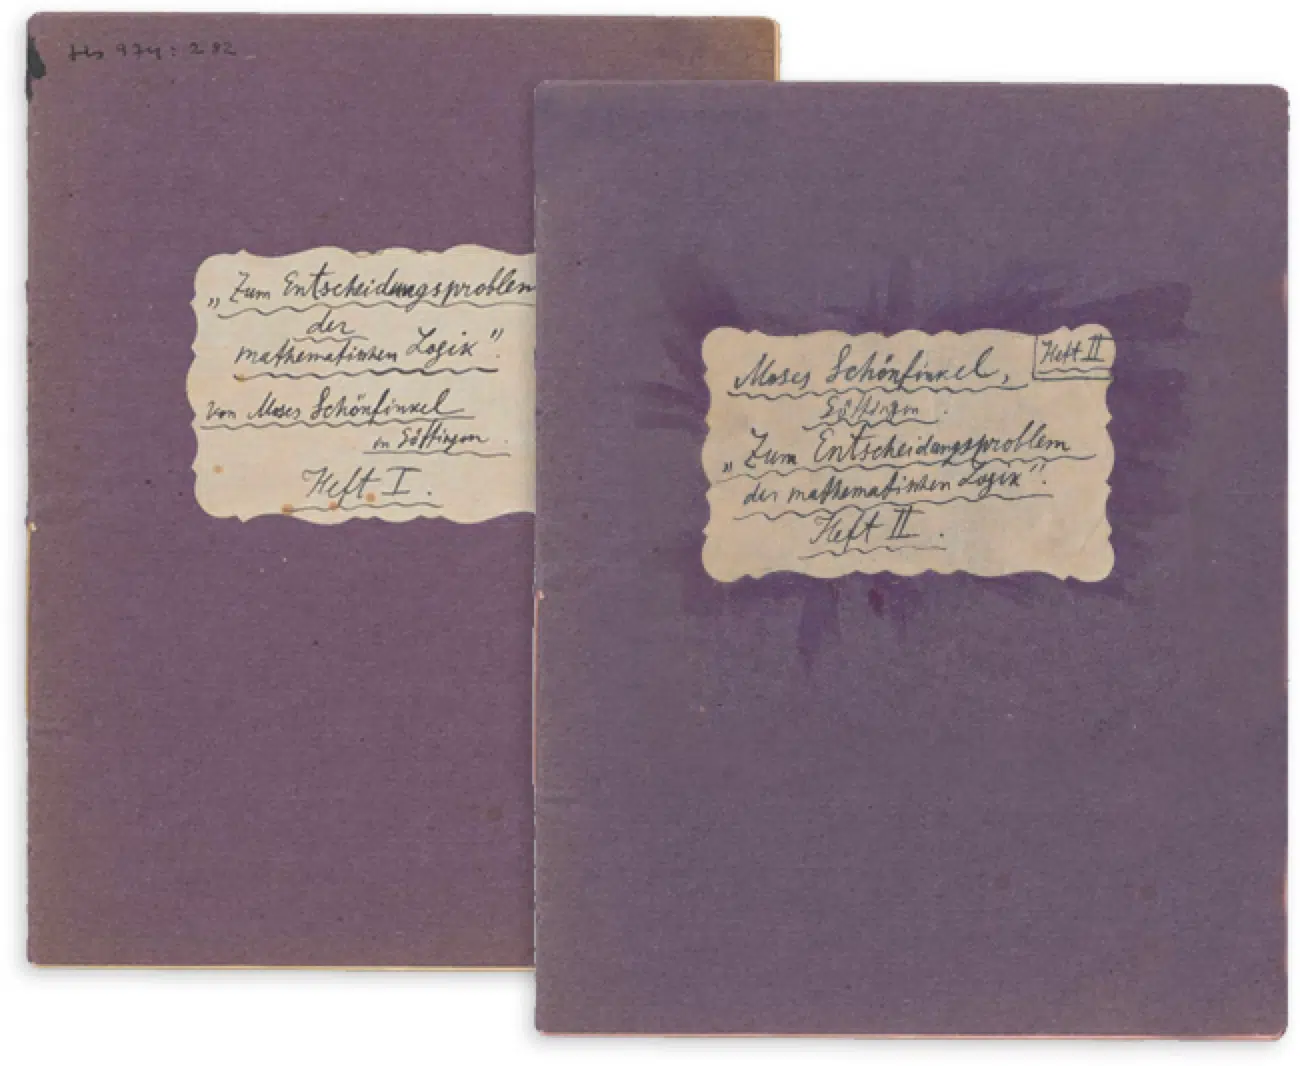 Hs 974: 282
„Zum Entscheidungsproblem
der
mathematischen Logik".
von Moses Schönfinkel
in Göttingen.
Heft I.
Heft II
Moses Schönfinkel,
Göttingen.
„Zum Entscheidungsproblem
der mathematischen Logik".
Heft II.